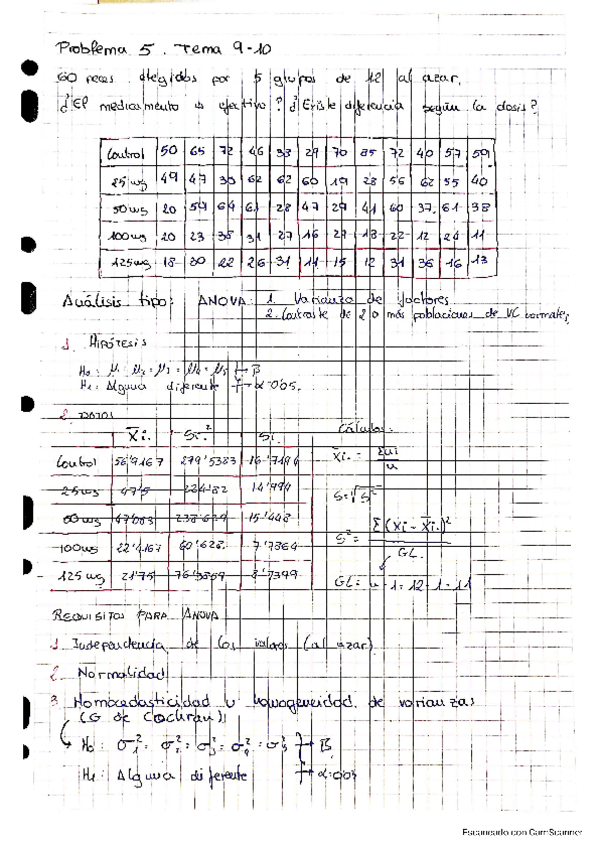 Problema 5. Tema 9-10
60 peces elegidos por 5 grupos de 12 al azar.
¿El medicamento es efectivo? ¿Existe diferencia según la dosis?
Control 50 65 72 46 38 29 70 85 72 40 57 59
25 ug 49 47 30 62 62 60 19 28 56 62 55 40
50ug 20 54 64 61 28 47 29 41 60 37 61 38
100ug 20 23 38 31 27 16 27 18 22 12 24 11
125ug 18 30 22 26 31 11 15 12 31 36 16 13
Análisis tipo: ANOVA: 1. Varianza de factores
2. Contraste de 2 o más poblaciones de VC normales
1. HIPÓTESIS
H0: μ1 = μ2 = μ3 = μ4 = μ5 → β
H1: Alguna diferente → α=0'05.
2. DATOS
X̄i. Si.² Si.
Cálculos.
Control 56'9167 279'5383 16'7194
X̄i. = Σxi / n
25ug 47'5 224'82 14'994
S=√S²
50ug 47'083 238'629 15'448
S² = Σ(Xi - X̄i.)² / GL.
100ug 22'4167 60'628 7'7864
125ug 21'75 76'3859 8'7399
GL= n-1 = 12-1 = 11
REQUISITOS PARA ANOVA
1. Independencia de los valores (al azar)
2. Normalidad
3. Homocedasticidad u homogeneidad de varianzas
(G de Cochran):
H0: σ1² = σ2² = σ3² = σ4² = σ5² → β
H1: Alguna diferente → α=0'05
Escaneado con CamScanner